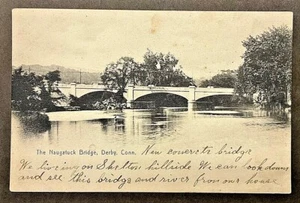 The Naugatuck Bridge, Derby, Conn. New concrete bridge
We living on Shelton hillside We can look down
and see this bridge and river from our house